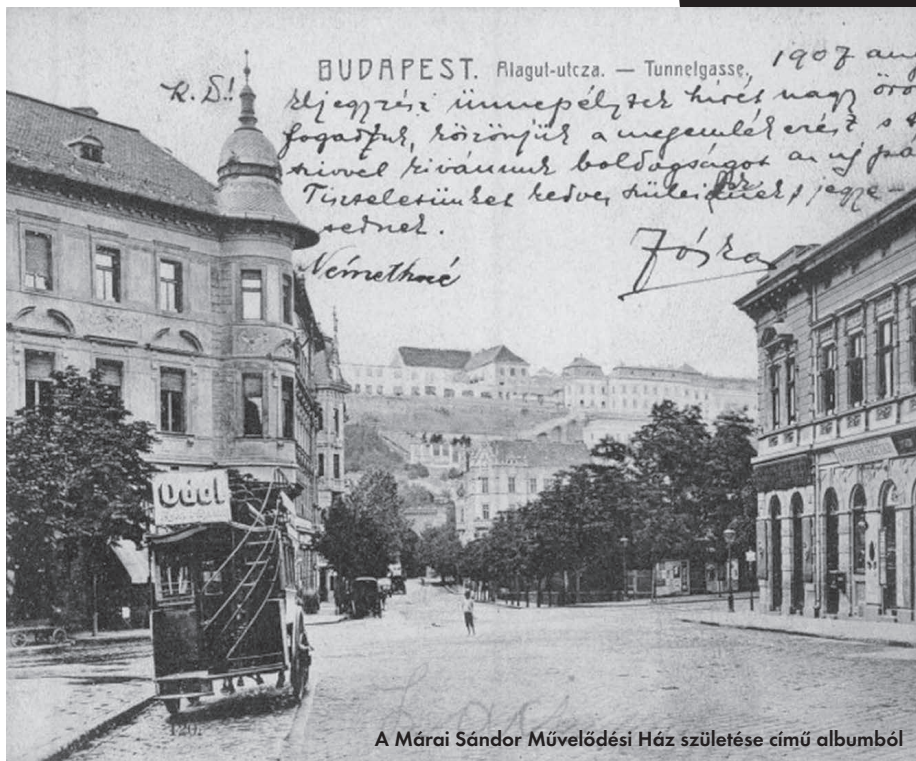 BUDAPEST. Alagut-utcza. — Tunnelgasse.
1907 aug
K. D.!
Eljegyzési ünnepélytek hirét nagy örö
fogadtuk, köszönjük a megemlékezést s
szivvel kivánunk boldogságot az uj pá
Tiszteletünket kedves szüleidnek s jegye-
sednek.
Némethné
Jóska
Odol
120.
A Márai Sándor Művelődési Ház születése című albumból